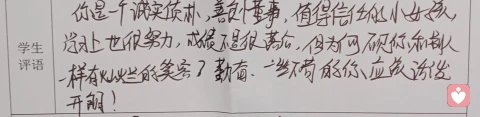 你是一个诚实质朴，善良懂事，值得信任的小女孩，
学生
评语
岗上也很努力，成绩不是很落后，但为何不见你和别人
一样有灿烂的笑容？勤奋、一丝不苟的你，应该活泼
开朗！